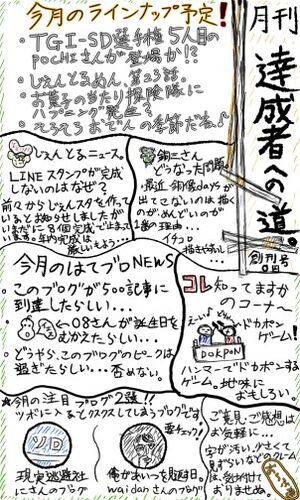 今月のラインナップ予定!
・TGI-SD選手権5人目の
pochiさんが登場か!?
・じぇんとるめん、第23話。
・お菓子の当たり探険隊に
ハプニング発生?
・そろそろおでんの季節だね♪
月刊
達成者への道。
創刊号
じぇんとるニュース。
LINEスタンプが完成
しないのはなぜ?
前々からじぇんスタを作って
いるとお知らせしましたが
いまだに8個完成でとまって
います。年内完成は
厳しいよう…
銅三さん
どうなった問題
・最近 銅像daysが
出てこないのは描く
のがめんどいのが
1番の理由…
イチコロ
描きやすし…
今月のはてブロNEWS
・このブログが500記事に
到達したらしい…
・←08さんが誕生日を
むかえたらしい…
・どうやら、このブログのピークは
過ぎたらしい… 否めない。
コレ知ってますか
のコーナ〜
ドカポン
ゲーム!
DOKPON
ハンマーでドカポンする
ゲーム。地味に
おもしろい。
★今月の注目ブログ2強!!
ツボに入るとクスクスしてしまうブログです
要チェック!
現実逃避社
にさんのブログ
俺があいつを見返す日。
waidanさんのブログ
ご意見・ご感想は
お気軽に…
字が汚い、小さくて
見ずらいなどのクレーム
は、気が付けて
おりませぬ。